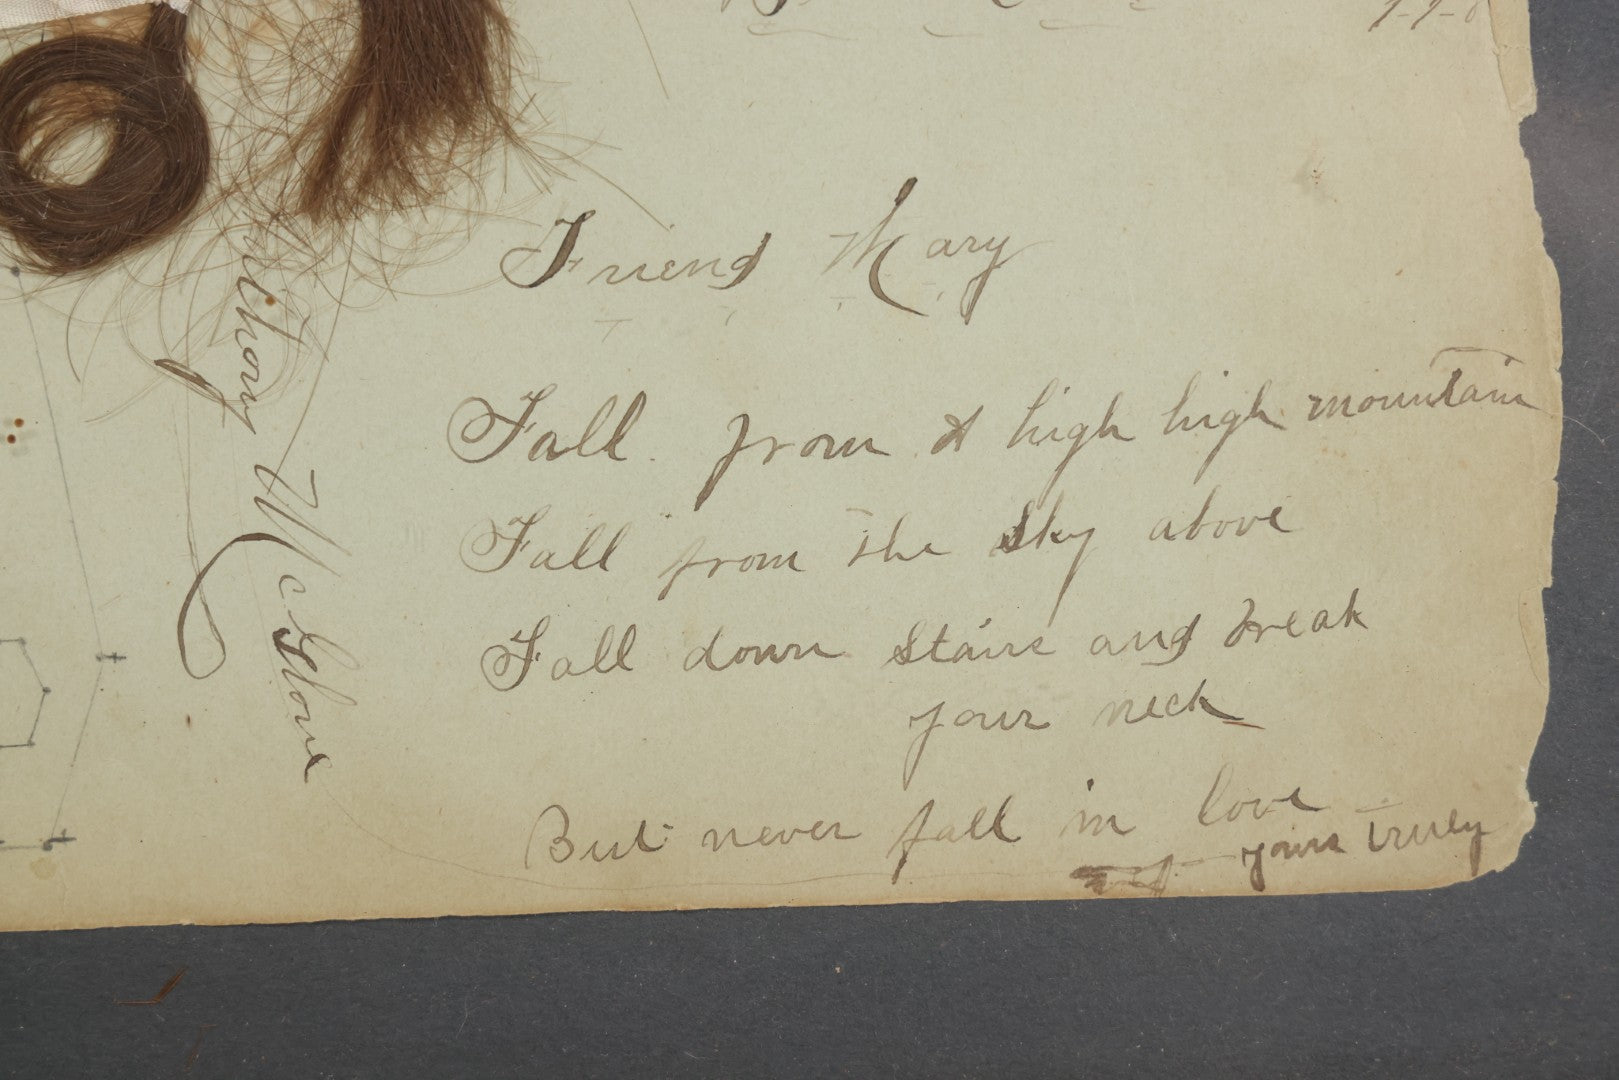 Friend Mary
Fall from a high high mountain
Fall from the sky above
Fall down stairs and break
your neck
But never fall in love
yours truly
McGlone